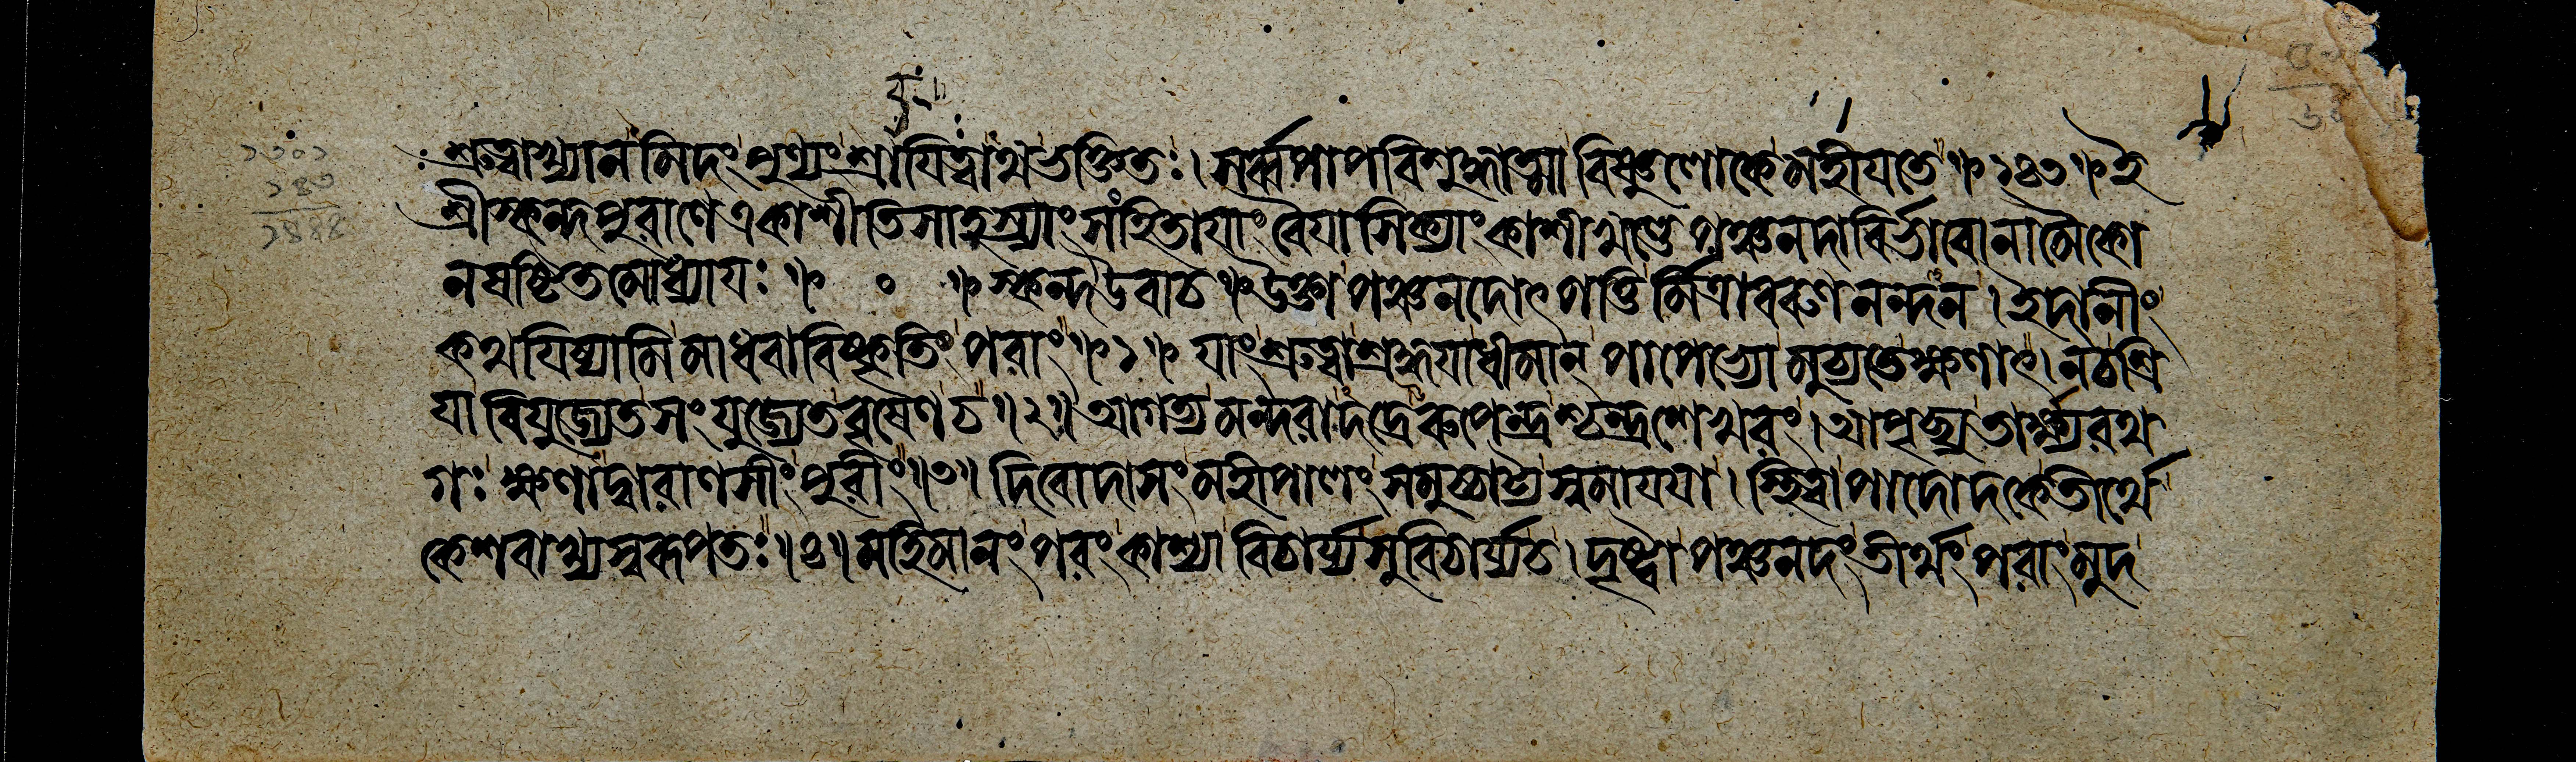 শ্রুত্বাখ্যানমিদং পুণ্যং শ্রাবযিত্বাথ ভক্তিতঃ। সর্ব্বপাপবিশুদ্ধাত্মা বিষ্ণুলোকে মহীযতে॥১৪৩॥ই
শ্রীস্কন্দপুরাণে একাশীতিসাহস্র্যাং সংহিতাযাং বৈযাসিক্যাং কাশীখণ্ডে পঞ্চনদাবির্ভাবোনামৈকো
নষষ্টিতমোধ্যাযঃ॥ ০ ॥স্কন্দউবাচ॥উক্তা পঞ্চনদোৎপত্তির্মিত্রাবরুণনন্দন। ইদানীং
কথযিষ্যামি মাধবাবিষ্কৃতিং পরাং॥১॥ যাং শ্রুত্বা শ্রদ্ধযা ধীমান্ পাপেভ্যো মুচ্যতে ক্ষণাৎ। নচ শ্রি
যা বিযুজ্যেত সংযুজ্যেত বৃষেণ চ॥২॥ আগত্য মন্দরাদদ্রেরুপেন্দ্রশ্চন্দ্রশেখরং। আপৃচ্ছ্য তার্ক্ষ্যরথ
গঃ ক্ষণাদ্বারাণসীং পুরীং॥৩॥ দিবোদাসং মহীপালং সমুচ্চাট্য স্বমাযযা। স্থিত্বা পাদোদকে তীর্থে
কেশবাখ্যস্বরূপতঃ॥৪॥ মহিমানং পরং কাশ্যা বিচার্য্য সুবিচার্য্য চ। দৃষ্ট্বা পঞ্চনদং তীর্থং পরাং মুদ